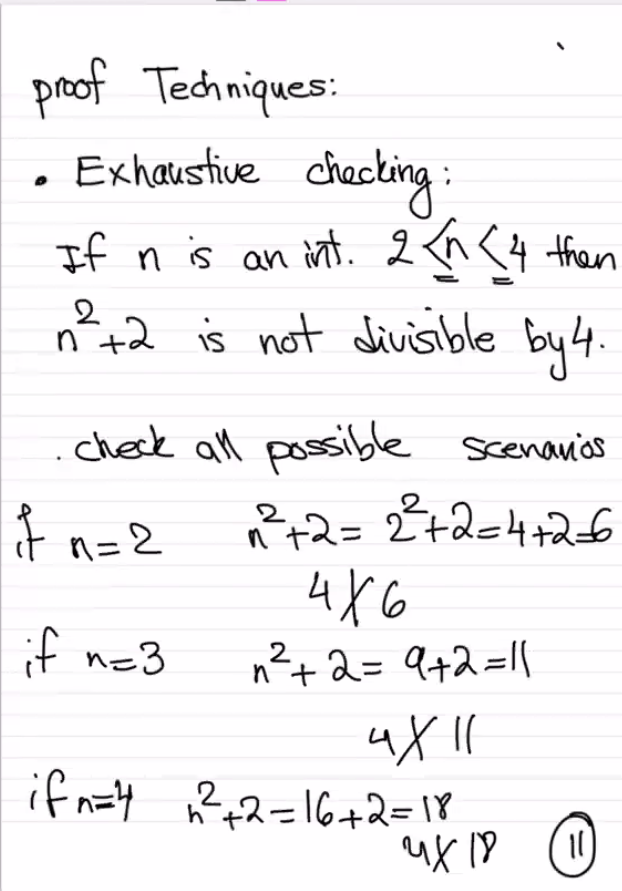 proof Techniques:
• Exhaustive checking:
If n is an int. 2 ≤ n ≤ 4 then
n²+2 is not divisible by 4.
. check all possible scenarios
if n=2 n²+2= 2²+2=4+2=6
4∤6
if n=3 n²+2= 9+2=11
4∤11
if n=4 n²+2=16+2=18
4∤18
11